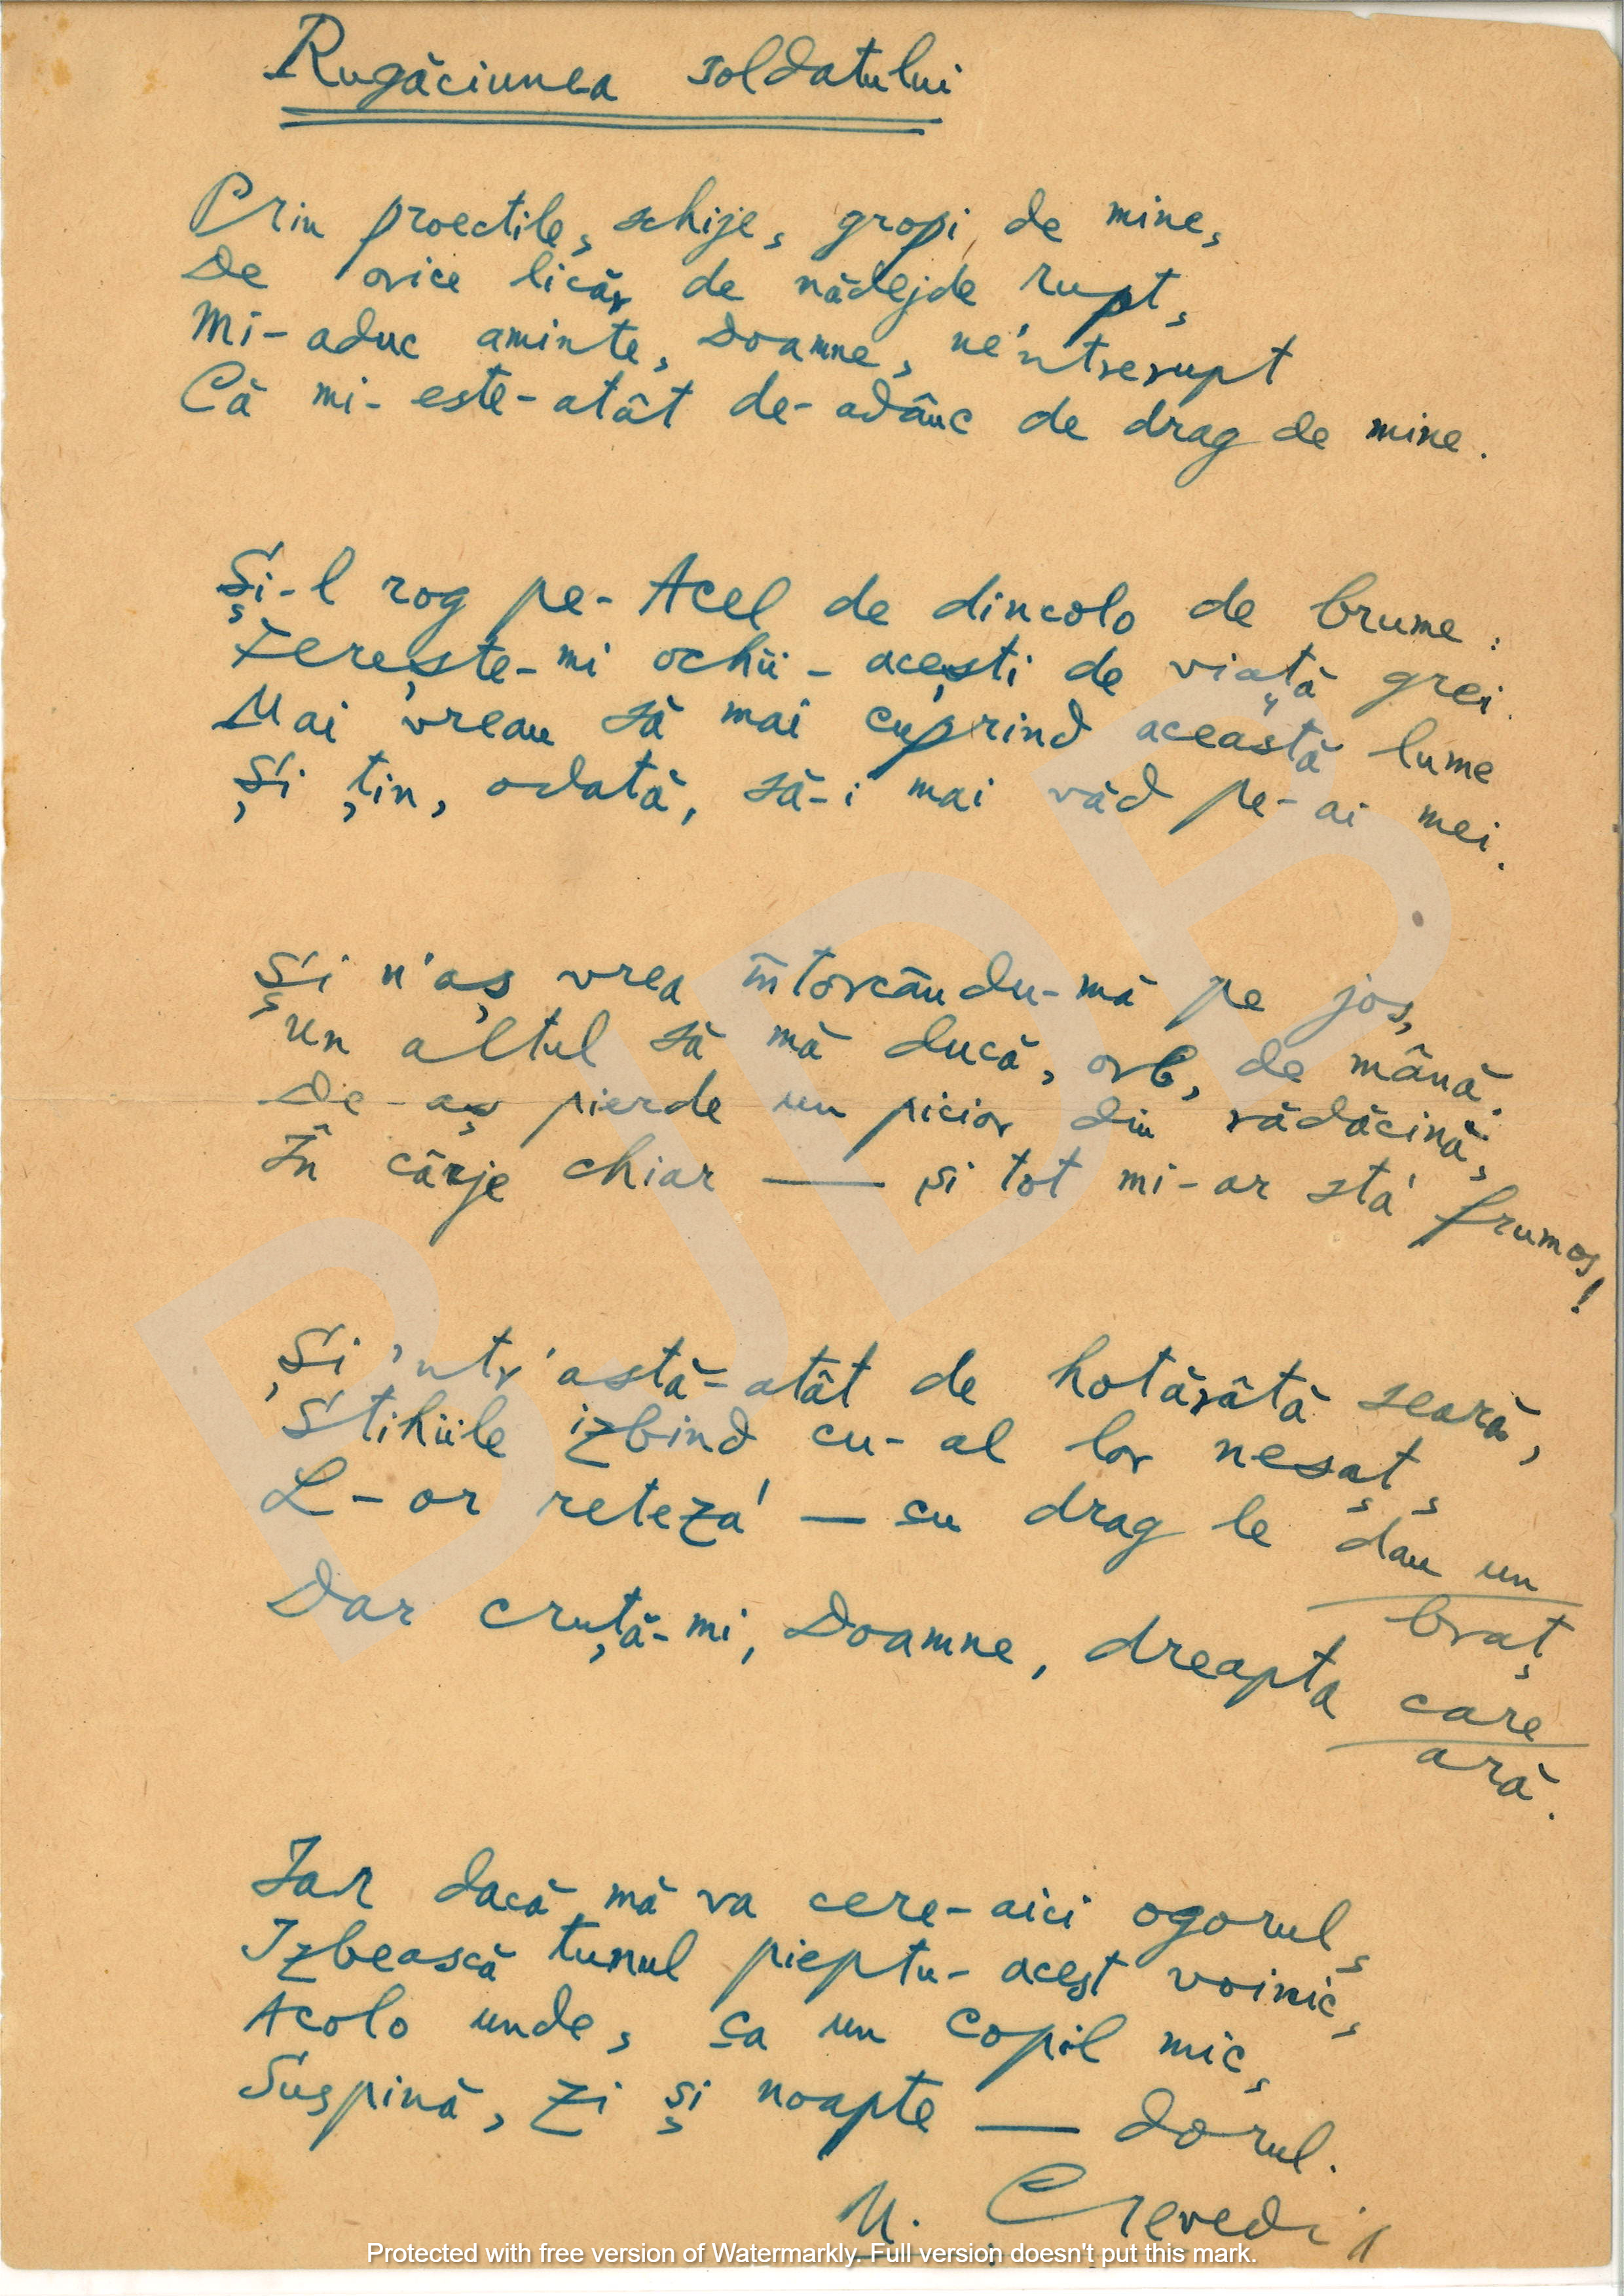 Rugăciunea soldatului
Prin proectile, schije, gropi de mine,
De orice licăr de nădejde rupt,
Mi-aduc aminte, Doamne, ne'ntrerupt
Că mi-este-atât de-adânc de drag de mine.
Și-l rog pe-Acel de dincolo de brume:
Ferește-mi ochii-acești de viață grei.
Mai vreau să mai cuprind această lume
Și țin, odată, să-i mai văd pe-ai mei.
Și n'aș vrea întorcându-mă pe jos,
Un altul să mă ducă, orb, de mână.
De-aș pierde un picior din rădăcină,
În cârje chiar — și tot mi-ar sta' frumos!
Și 'ntr'astă-atât de hotărâtă seară,
Stihiile izbind cu-al lor nesaț,
L-or reteza' — cu drag le dau un
braț
Dar cruță-mi, Doamne, dreapta care
ară.
Iar dacă mă va cere-aici ogorul,
Izbească tunul pieptu-acest voinic,
Acolo unde, ca un copil mic,
Suspină, zi și noapte — dorul.
N. Crevedia
Protected with free version of Watermarkly. Full version doesn't put this mark.
BJDB